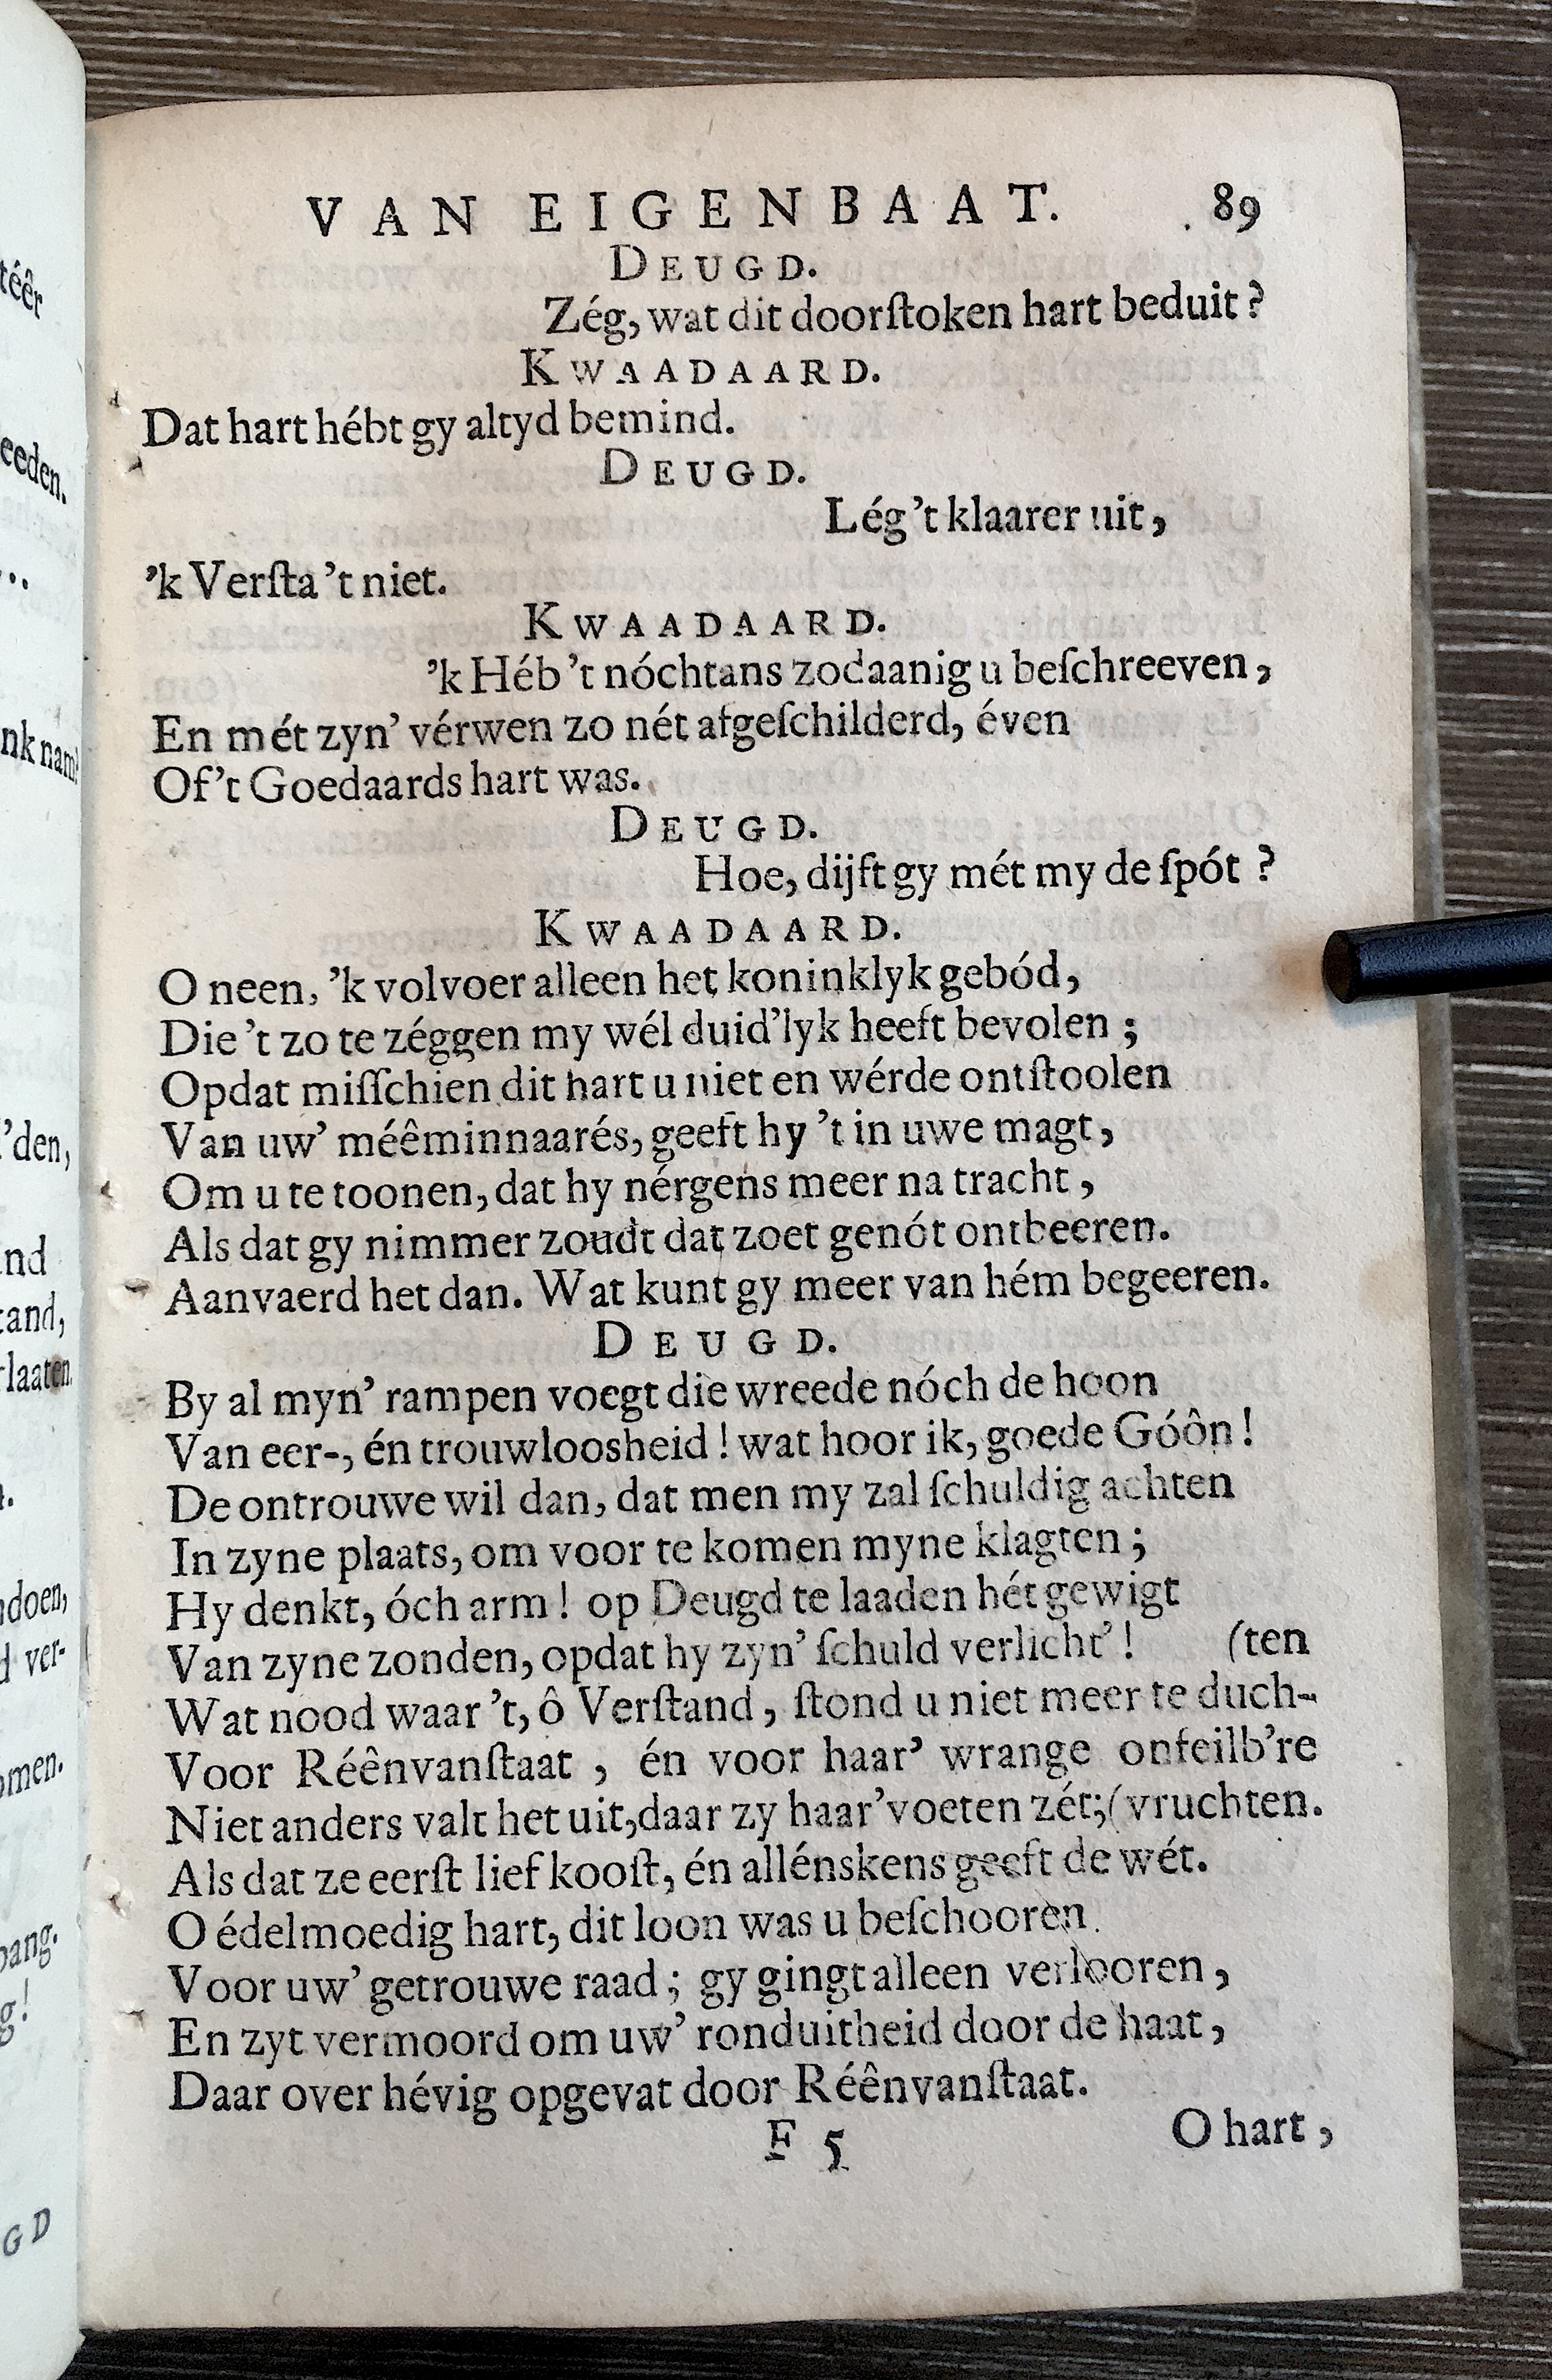 téêr
eeden.
nk nam
'den,
nd
tand,
rlaaten
doen,
d ver-
omen.
pang.
g!
G D
VAN EIGENBAAT. 89
DEUGD.
Zég, wat dit doorſtoken hart beduit?
KWAADAARD.
Dat hart hébt gy altyd bemind.
DEUGD.
Lég 't klaarer uit,
'k Verſta 't niet.
KWAADAARD.
'k Héb 't nóchtans zodaanig u beſchreeven,
En mét zyn' vérwen zo nét afgeſchilderd, éven
Of 't Goedaards hart was.
DEUGD.
Hoe, dijft gy mét my de ſpót?
KWAADAARD.
O neen, 'k volvoer alleen het koninklyk gebód,
Die 't zo te zéggen my wél duid'lyk heeft bevolen;
Opdat miſſchien dit hart u niet en wérde ontſtoolen
Van uw' méêminnaarés, geeft hy 't in uwe magt,
Om u te toonen, dat hy nérgens meer na tracht,
Als dat gy nimmer zoudt dat zoet genót ontbeeren.
Aanvaerd het dan. Wat kunt gy meer van hém begeeren.
DEUGD.
By al myn' rampen voegt die wreede nóch de hoon
Van eer-, én trouwloosheid! wat hoor ik, goede Góôn!
De ontrouwe wil dan, dat men my zal ſchuldig achten
In zyne plaats, om voor te komen myne klagten;
Hy denkt, óch arm! op Deugd te laaden hét gewigt
Van zyne zonden, opdat hy zyn' ſchuld verlicht'! (ten
Wat nood waar 't, ô Verſtand, ſtond u niet meer te duch-
Voor Réênvanſtaat, én voor haar' wrange onfeilb're
Niet anders valt het uit, daar zy haar' voeten zét; (vruchten.
Als dat ze eerſt lief kooſt, én allénskens geeft de wét.
O édelmoedig hart, dit loon was u beſchooren
Voor uw' getrouwe raad; gy gingt alleen verlooren,
En zyt vermoord om uw' ronduitheid door de haat,
Daar over hévig opgevat door Réênvanſtaat.
F 5 O hart,